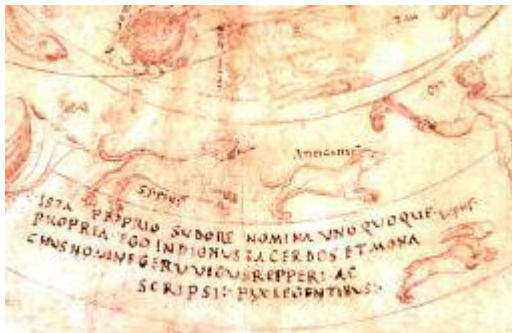 ANTICANIS
LEPUS
ISTA PROPRIO SUDORE NOMINA UNO QUOQUE
PROPRIA EGO INDIGNUS SACERDOS ET MONA
CHUS NOMINE GERUVIGUS REPPERI AC
SCRIPSI: PAX LEGENTIBUS: